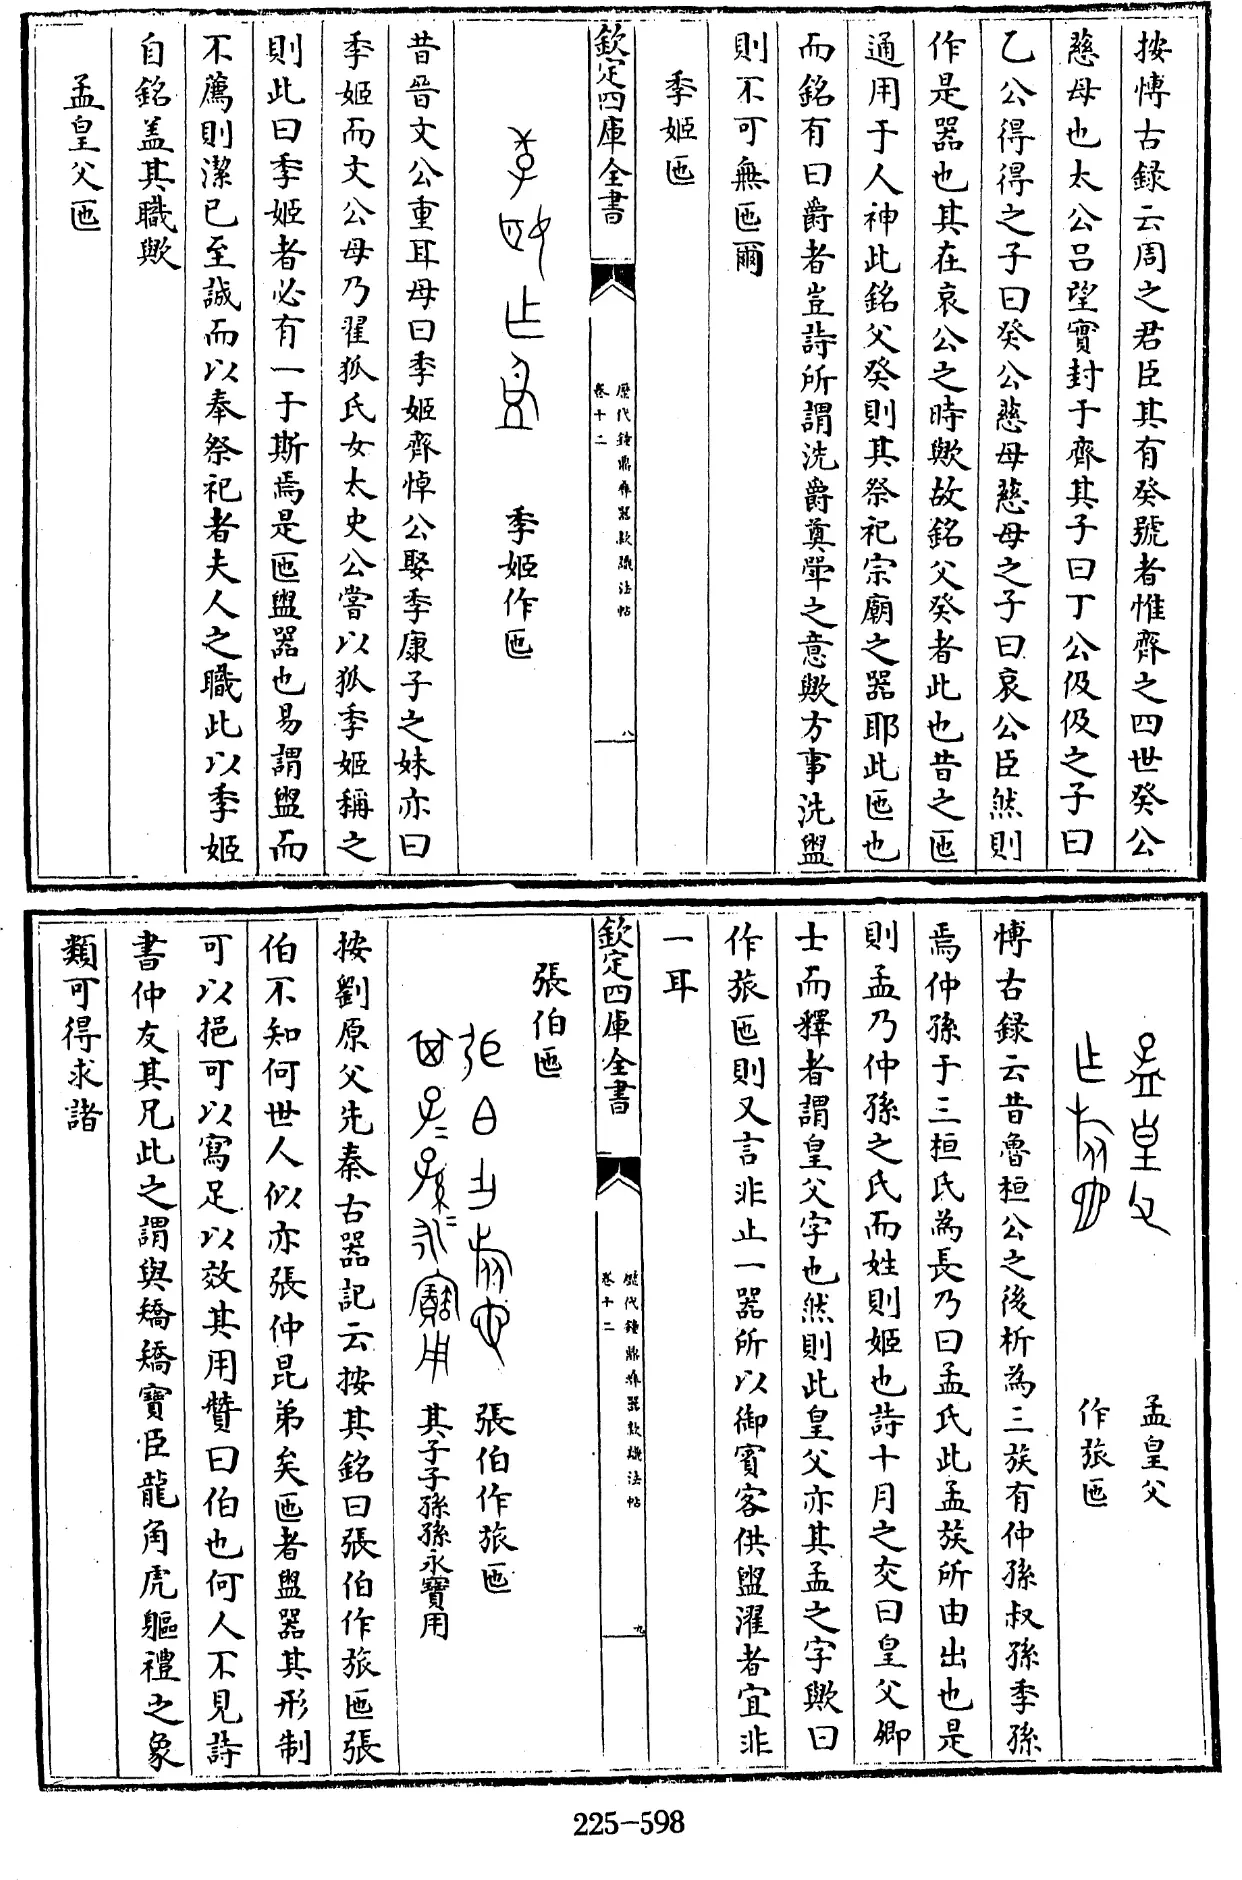 按博古録云周之君臣其有癸號者惟齊之四世癸公
慈母也太公吕望實封于齊其子曰丁公伋伋之子曰
乙公得得之子曰癸公慈母慈母之子曰哀公臣然則
作是器也其在哀公之時歟故銘父癸者此也昔之匜
通用于人神此銘父癸則其祭祀宗廟之器耶此匜也
而銘有曰爵者豈詩所謂洗爵奠斝之意歟方事洗盥
則不可無匜爾
季姬匜
欽定四庫全書
歷代鐘鼎彝器款識法帖
卷十二
八
季姬作匜
昔晉文公重耳母曰季姬齊悼公娶季康子之妹亦曰
季姬而文公母乃翟狐氏女太史公嘗以狐季姬稱之
則此曰季姬者必有一于斯焉是匜盥器也易謂盥而
不薦則潔已至誠而以奉祭祀者夫人之職此以季姬
自銘盖其職歟
孟皇父匜
孟皇父
作旅匜
博古録云昔魯桓公之後析為三族有仲孫叔孫季孫
焉仲孫于三桓氏為長乃曰孟氏此孟族所由出也是
則孟乃仲孫之氏而姓則姬也詩十月之交曰皇父卿
士而釋者謂皇父字也然則此皇父亦其孟之字歟曰
作旅匜則又言非止一器所以御賓客供盥濯者宜非
一耳
欽定四庫全書
歷代鐘鼎彝器款識法帖
卷十二
九
張伯匜
張伯作旅匜
其子子孫孫永寶用
按劉原父先秦古器記云按其銘曰張伯作旅匜張
伯不知何世人似亦張仲昆弟矣匜者盥器其形制
可以挹可以寫足以效其用贊曰伯也何人不見詩
書仲友其兄此之謂與矯矯寶臣龍角虎軀禮之象
類可得求諸
225-598